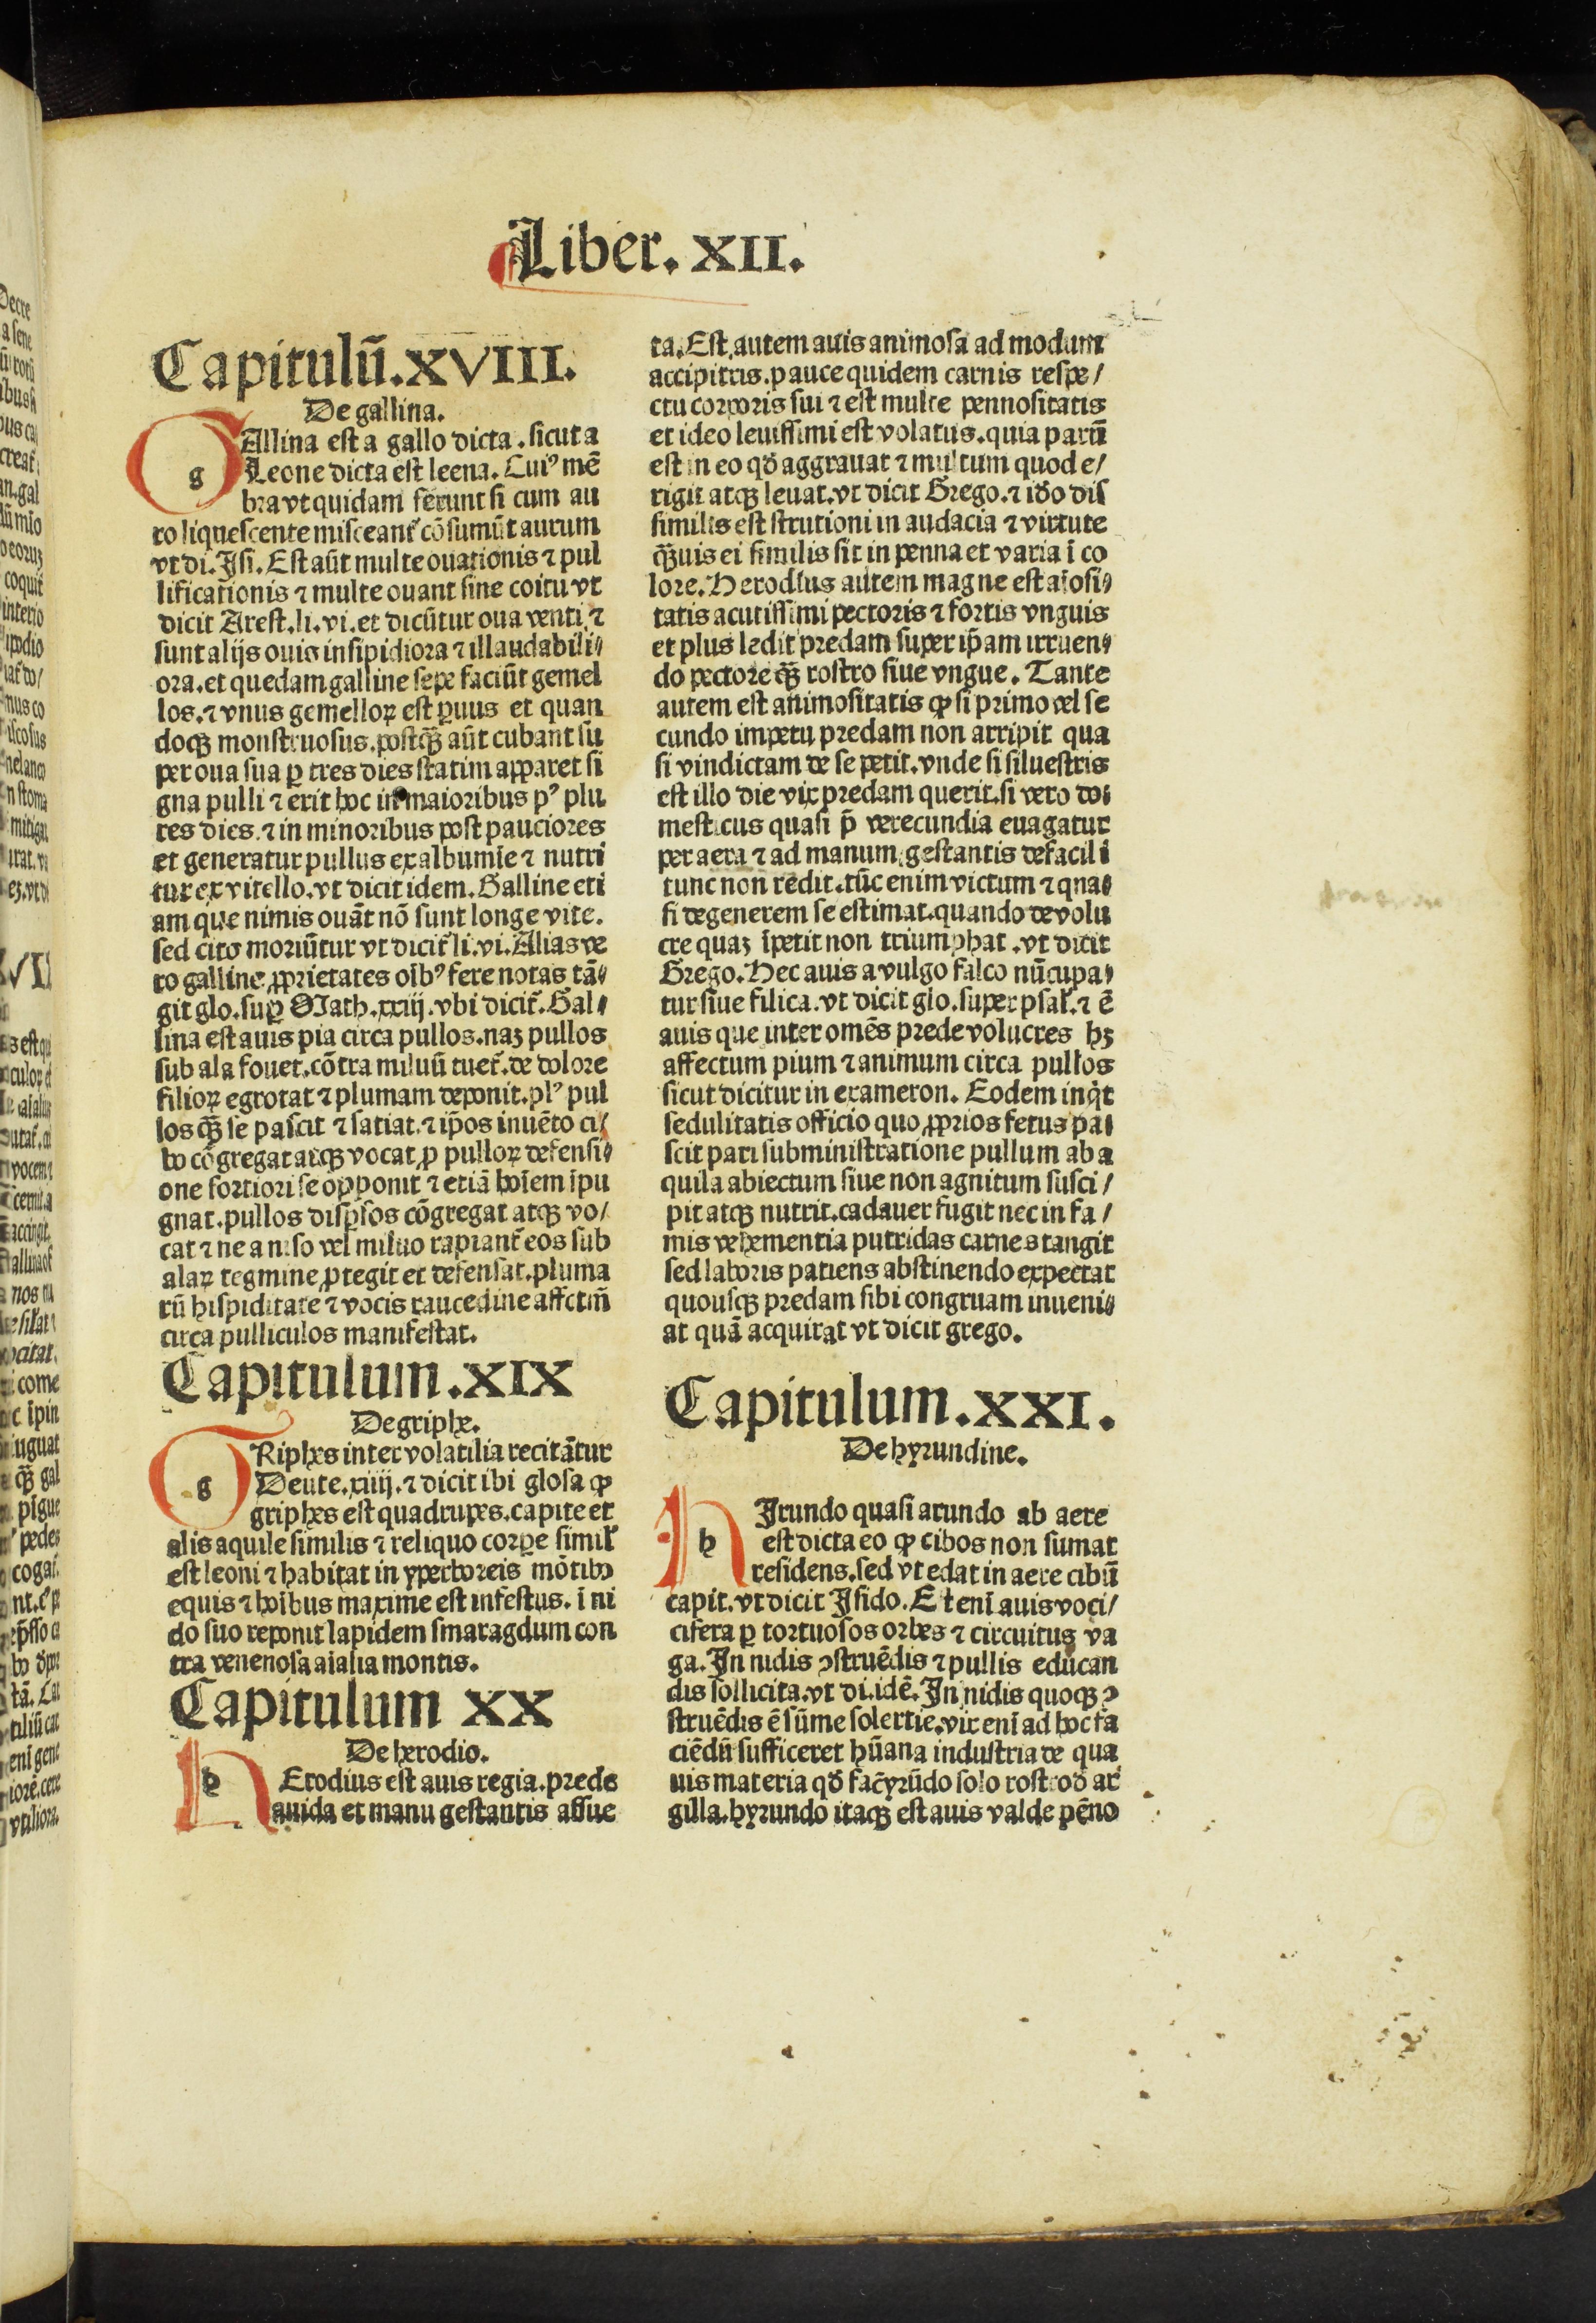 Liber. XII.
Capitulū. XVIII.
De gallina.
g
Allina est a gallo dicta. sicut a
Leone dicta est leena. Cuiꝰ mē
bra vt quidam ferunt si cum au
ro liquescente misceant᷑ cōsumūt aurum
vt di. Isi. Est aūt multe ouationis ⁊ pul
lificationis ⁊ multe ouant sine coitu vt
dicit Arest. li. vi. et dicūtur oua venti, ⁊
sunt alijs ouis insipidiora ⁊ illaudabili⸗
ora. et quedam galline sepe faciūt gemel
los. ⁊ vnus gemelloꝝ est ꝑuus et quan
doqꝫ monstruosus. postqꝫ̄ aūt cubant su
per oua sua ꝑ tres dies statim apparet si
gna pulli ⁊ erit hoc in maioribus pꝰ plu
res dies. ⁊ in minoribus post pauciores
et generatur pullus ex albumīe ⁊ nutri
tur ex vitello. vt dicit idem. Galline eti
am que nimis ouāt nō sunt longe vite.
sed cito moriūtur vt dicit᷑ li. vi. Alias ve
ro galline ꝓprietates oībꝰ fere notas tā⸗
git glo. suꝑ Math. xxiij. vbi dicit᷑. Gal⸗
lina est auis pia circa pullos. naꝫ pullos
sub ala fouet. cōtra miluū tuet᷑. de dolore
filioꝝ egrotat ⁊ plumam deponit. plꝰ pul
los qꝫ̄ se pascit ⁊ satiat. ⁊ ip̄os inuēto ci/
bo cōgregat atqꝫ vocat, ꝑ pulloꝝ defensi⸗
one fortiori se opponit ⁊ etiā hoīem īpu
gnat. pullos disꝑsos cōgregat atqꝫ vo/
cat ⁊ ne a niso vel miluo rapiant᷑ eos sub
alaꝝ tegmine ꝓtegit et defensat. pluma
rū hispiditate ⁊ vocis raucedine affctm̄
circa pulliculos manifestat.
Capitulum. XIX
De griphe.
g
Riphes inter volatilia recitātur
Deute. xiiij. ⁊ dicit ibi glosa ꝙ
griphes est quadrupes. capite et
alis aquile similis ⁊ reliquo corꝑe simil᷑
est leoni ⁊ habitat in yperboreis mōtibꝰ
equis ⁊ hoībus maxime est infestus. ī ni
do suo reponit lapidem smaragdum con
tra venenosa aīalia montis.
Capitulum XX
De herodio.
h
Erodius est auis regia. prede
auida et manu gestantis assue
ta. Est autem auis animosa ad modum
accipitris. pauce quidem carnis respe/
ctu corporis sui ⁊ est multe pennositatis
et ideo leuissimi est volatus. quia parū
est in eo qð aggrauat ⁊ multum quod e/
rigit atqꝫ leuat. vt dicit Grego. ⁊ iðo dis
similis est strutioni in audacia ⁊ virtute
qꝫ̄uis ei similis sit in penna et varia ī co
lore. Herodius autem magne est aīosi⸗
tatis acutissimi pectoris ⁊ fortis vnguis
et plus ledit predam super ip̄am irruen⸗
do pectore qꝫ̄ rostro siue vngue. Tante
autem est animositatis ꝙ si primo vel se
cundo impetu predam non arripit qua
si vindictam de se petit. vnde si siluestris
est illo die vix predam querit. si vero do⸗
mesticus quasi p̄ verecundia euagatur
per aera ⁊ ad manum gestantis defacili
tunc non redit. tūc enim victum ⁊ qua⸗
si degenerem se estimat. quando devolu
cre quaꝫ īpetit non triumphat. vt dicit
Grego. Hec auis a vulgo falco nūcupa⸗
tur siue filica. vt dicit glo. super psal᷑. ⁊ ē
auis que inter omēs prede volucres hꝫ
affectum pium ⁊ animum circa pullos
sicut dicitur in exameron. Eodem inqͥt
sedulitatis officio quo ꝓprios fetus pa⸗
scit pari subministratione pullum ab a
quila abiectum siue non agnitum susci/
pit atqꝫ nutrit. cadauer fugit nec in fa/
mis vehementia putridas carnes tangit
sed laboris patiens abstinendo expectat
quousqꝫ predam sibi congruam inueni⸗
at quā acquirat vt dicit grego.
Capitulum. XXI.
De hyrundine.
h
Irundo quasi arundo ab aere
est dicta eo ꝙ cibos non sumat
residens. sed vt edat in aere cibū
capit. vt dicit Isido. Et enī auis voci/
cifera ꝑ tortuosos orbes ⁊ circuitus va
ga. In nidis ꝯstruēdis ⁊ pullis educan
dis sollicita. vt di. idē. In nidis quoqꝫ ꝯ
struēdis ē sūme solertie. vix enī ad hoc fa
ciēdū sufficeret hūana industria de qua
uis materia qð fac̄ yrūdo solo rostro ð ar
gilla. hyrundo itaqꝫ est auis valde pēno